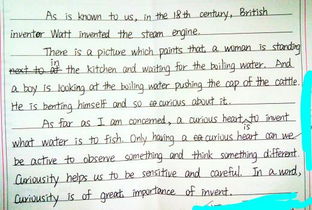 As is known to us, in the 18th century, British
inventor Watt invented the steam engine.
There is a picture which paints that a woman is standing
next to in the kitchen and waiting for the boiling water. And
a boy is looking at the boiling water pushing the cap of the cattle.
He is benting himself and so curious about it.
As far as I am concerned, a curious heart to invent is
what water is to fish. Only having a curious heart can we
be active to observe something and think something different.
Curiousity helps us to be sensitive and careful. In a word,
Curiousity is of great importance of invent.